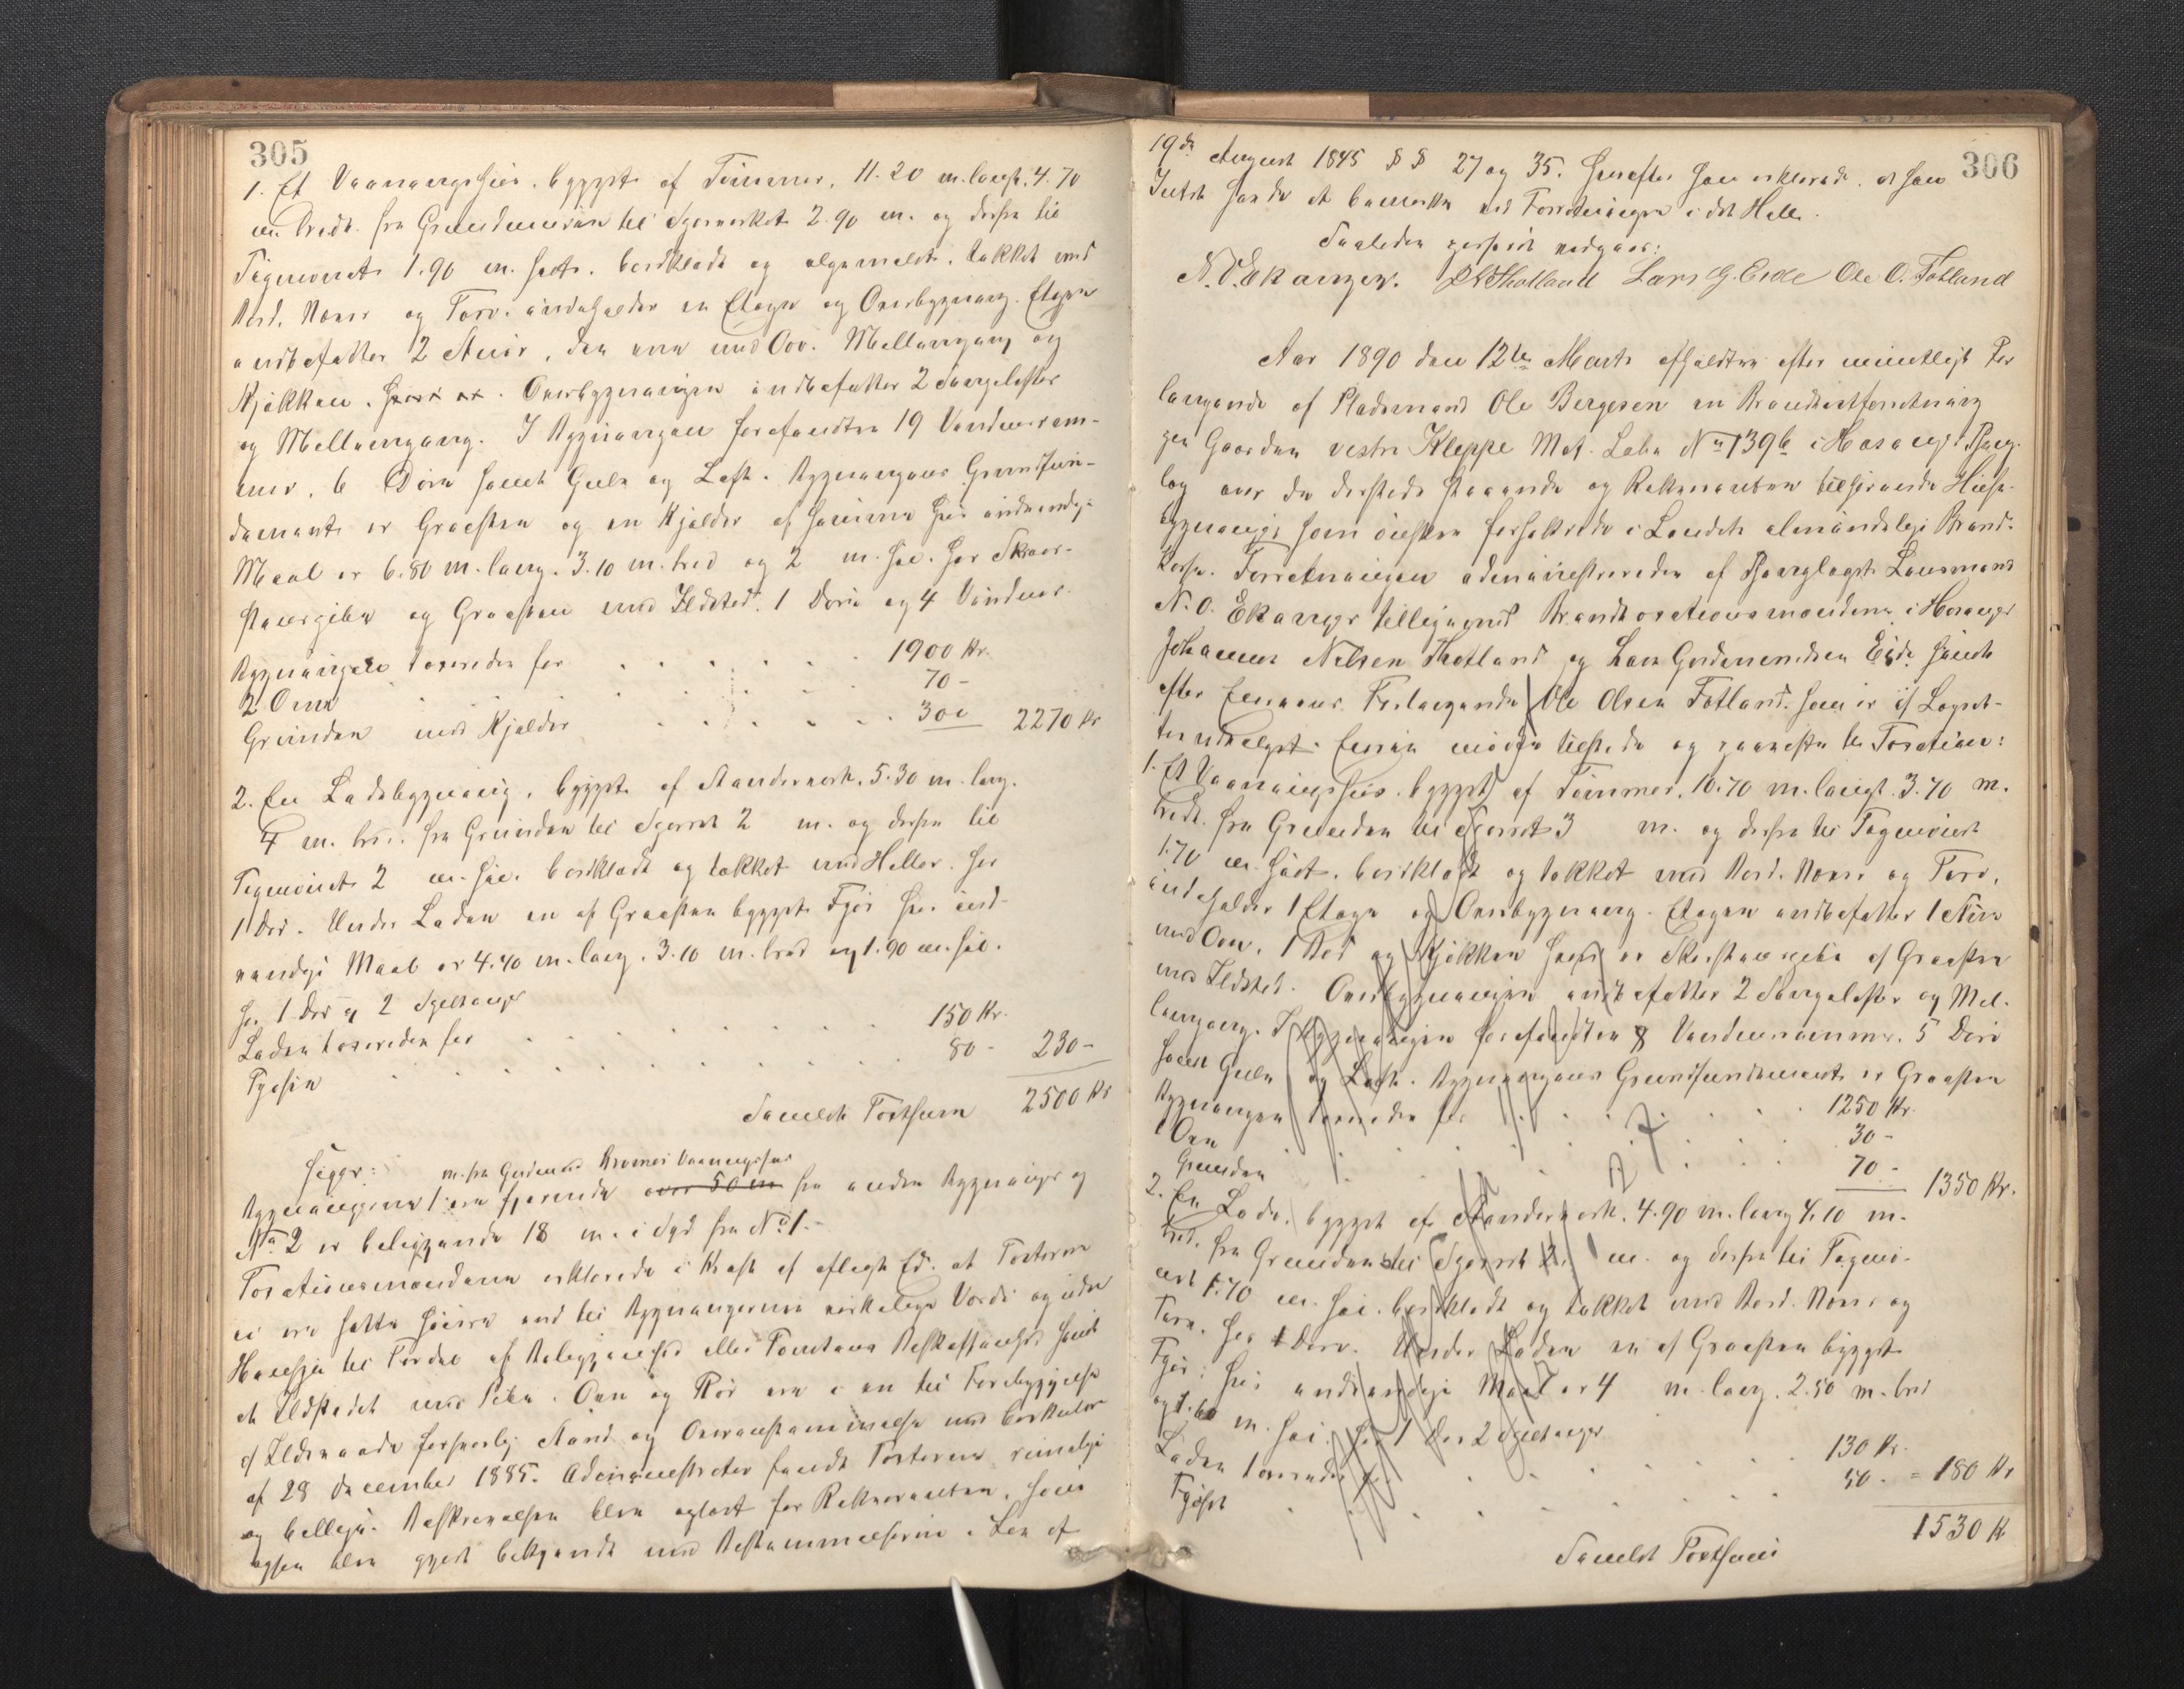 305
1. Et Vaaningshus, bygget af Tømmer, 11.20 m. langt, 4.70
m. bredt. fra Grundmuren til Sperreverket 2.90 m. og derfra til
Tagmønet 1.90 m. høit. bordklædt og oljemalet. tækket med
Bord, Næver og Torv. indeholder en Etage og Overbygning. Etagen
indbefatter 2 Stuer, den ene med Ovn. Mellemgang og
Kjøkken. Overbygningen indbefatter 2 Sengelofter
og Mellemgang. I Bygningen forefandtes 19 Vinduesram-
mer, 6 Døre samt Gulv og Loft. Bygningens Grundfun-
dament er Graasten og en Kjelder af samme hvis indvendige
Maal er 6.80 m. lang. 3.10 m. bred og 2 m. høi. har Skor-
stenspibe og Graasten med Ildsted. 1 Dør og 4 Vinduer.
Bygningen taxeredes for 1900 Kr.
2 Ovne 70 -
Grunden med Kjelder 300 2270 Kr
2. En Ladebygning, bygget af Stenderverk. 5.30 m. lang.
4 m. bred. fra Grunden til Sperret 2 m. og derfra til
Tagmønet 2 m. høi. bordklædt og tækket med Heller. har
1 Dør. Under Laden en af Graasten bygget Fjøs hvis ind-
vendige Maal er 4.40 m. lang. 3.10 m. bred og 1.90 m. høi.
har 1 Dør og 2 Speltenger
Laden taxeredes for 150 Kr.
Fjøsen 80 - 230 -
Samlet Taxtsum 2500 Kr
m. fra Gaardmand Vaaningshus
Bygningerne 1 ere fjernede over 50 m fra anden Bygninger og
No 2 er beliggende 18 m. i Syd fra No 1.
Taxationsmændene erklærede i Kraft af aflagt Ed. at Taxterne
ei ere satte høiere end til Bygningernes virkelige Værdi og uden
Hensyn til Fordel af Beliggenhed eller Tomtens Beskaffenhed samt
at Ildstedet med Piben. Ovn og Rør ere i en til Forebyggelse
af Ildsvaade forsvarlig Stand og Overensstemmelse med Cirkulær
af 28 December 1885. Administrator fandt Taxterne rimelige
og billige. Beskrivelsen blev oplæst for Rekvirenten, som
ogsaa blev gjort bekjendt med Bestemmelserne i Lov af
306
19de August 1845 §§ 27 og 35. hvorefter han erklærede at han
Intet havde at bemerke ved Forretningen i det Hele.
Saaledes passeret vedgaaes:
N. O. Ekanger. J. N. Hotland Lars G. Eide Ole O. Fotland
Aar 1890 den 12te Marts afholdtes efter mundtligt For
langende af Pladsmand Ole Bergesen en Brandtaxtforretning
paa Gaarden vestre Kleppe Mat. Løbe No 139b i Hosanger Thing-
lag over de dersteds staaende og Rekvirenten tilhørende Huse
bygninger som ønskes forsikrede i Landets almindelige Brand-
kasse. Forretningen administreredes af Thinglagets Lensmand
N. O. Ekanger tilligemed Brandtaxationsmændene i Hosanger
Johannes Nilsen Hotland og Lars Gudmundsen Eide samt
efter Eierens Forlangende Ole Olsen Fotland. som er af Lagret-
tet udvalgt. Eieren mødte tilstede og paaviste til Taxation:
1. Et Vaaningshus. bygget af Tømmer. 10.70 m. langt. 3.70 m.
bredt. fra Grunden til Sperret 3 m. og derfra til Tagmønet
1.70 m. høit. bordklædt og tækket med Bord. Næver og Torv.
indeholder 1 Etage og Overbygning. Etagen indbefatter 1 Stue
med Ovn. 1 Bod og Kjøkken hvori er Skorstenspibe af Graasten
med Ildsted. Overbygningen indbefatter 2 Sengelofter og Mel-
lemgang. I Bygningen forefandtes 8 Vinduesrammer. 5 Døre
samt Gulv og Loft. Bygningens Grundfundament er Graasten
Bygningen taxeredes for 1250 Kr.
1 Ovn 30 -
Grunden 70 - 1350 Kr.
2. En Lade, bygget af Stenderverk. 4.90 m. lang 4.10 m.
bred. fra Grunden til Sperret 2. m. og derfra til Tagmø-
net 1.70 m. høi. bordklædt og tækket med Bord. Næver og
Torv. har 1 Dør. Under Laden en af Graasten bygget
Fjøs: hvis indvendige Maal er 4 m. lang. 2.50 m. bred
og 1.60 m. høi. har 1 Dør 2 Speltenger
Laden taxeredes for 130 Kr.
Fjøset 50 - = 180 Kr
Samlet Taxtsum 1530 Kr